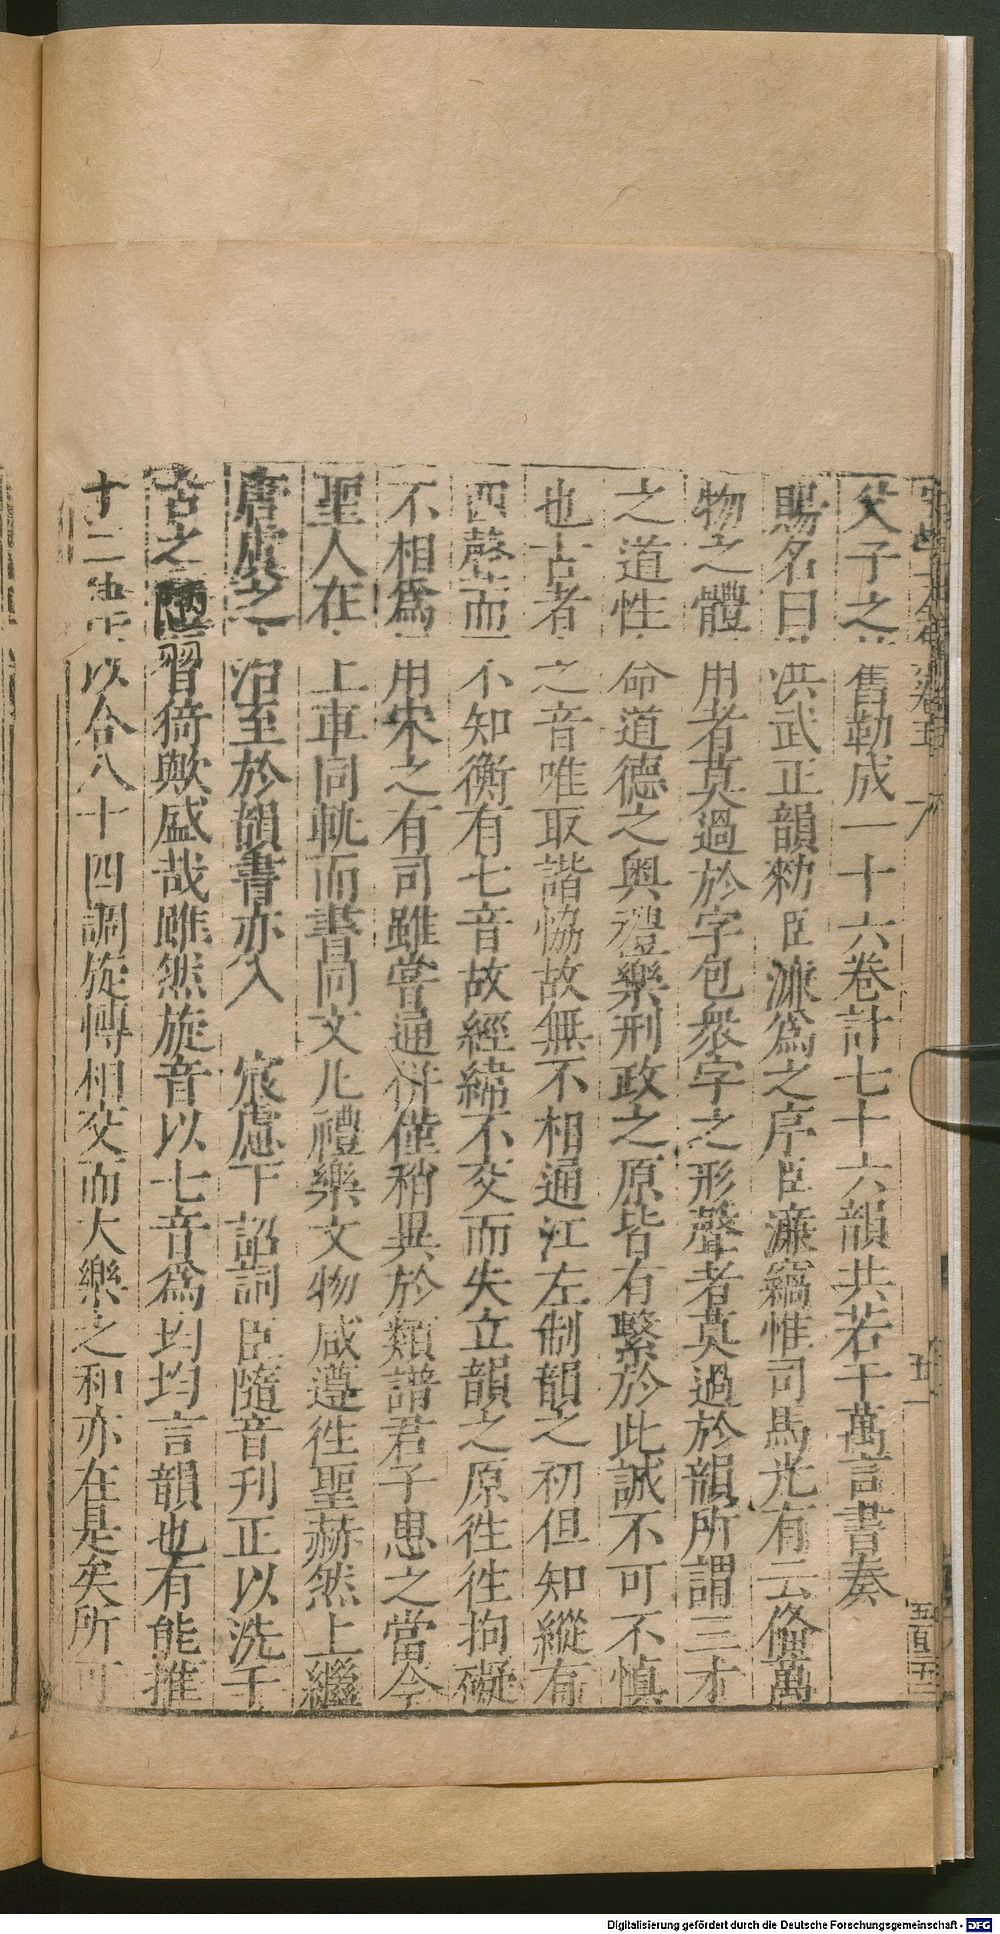 父子之 舊勒成一十六卷計七十六韻共若干萬言書奏
賜名曰 洪武正韻勑臣濂爲之序臣濂竊惟司馬光有云俻萬
物之體 用者莫過於字包衆字之形聲者莫過於韻所謂三才
之道性 命道德之奥禮樂刑政之原皆有繫於此誠不可不慎
也古者 之音唯取諧恊故無不相通江左制韻之初但知縱有
四聲而 不知衡有七音故經緯不交而失立韻之原徃徃拘礙
不相爲 用宋之有司雖甞通倂僅稍異於類譜君子患之當今
聖人在 上車同軌而書同文凡禮樂文物咸遵徃聖赫然上繼
唐虞之 治至於韻書亦入 宸慮下詔詞臣隨音刊正以洗千
古之陋習猗歟盛哉雖然旋音以七音爲均均言韻也有能推
十二律 以合八十四調旋轉相交而大樂之和亦在是矣所可
卷五
五一
五百五
Digitalisierung gefördert durch die Deutsche Forschungsgemeinschaft - DFG